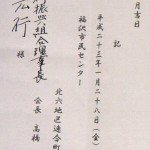 月吉日
記
平成二十三年一月二十八日（金）
福沢市民センター
北六地区連合町
会長　高橋
振興組合理事長
宏行　様